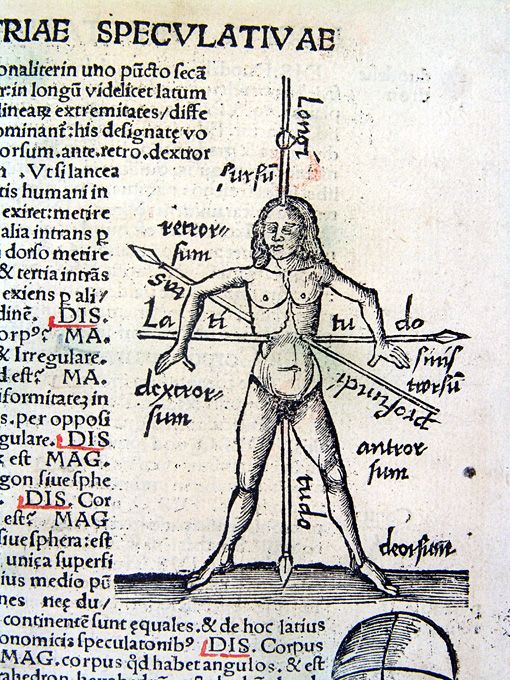 TRIAE SPECVLATIVAE
onaliter in uno pūcto secā
r: in longū videlicet latum
lineaꝝ extremitates/diffe
ominant̄: his designatę vo
orsum. ante. retro. dextror
. Vt si lancea
tis humani in
exiret: metire
alia intrans ꝑ
i dorso metire
& tertia intrās
exiens ꝑ ali/
dinē. DIS.
orpꝰ? MA.
& Irregulare.
d est? MA.
iformitatez in
s. per opposi
gulare. DIS
est MAG.
gon siue sphe
. DIS. Cor
est? MAG
siue sphera: est
unica superfi
ius medio pū
nes neę du/
continentē sunt ęquales. & de hoc latius
onomicis speculatonibꝰ. DIS. Corpus
MAG. corpus qd habet angulos. & est
Longi
sursū
retror-
sum
La ti tu do
sinis
trorsū
dextror-
sum
profundi
antror
sum
tudo
deorsum